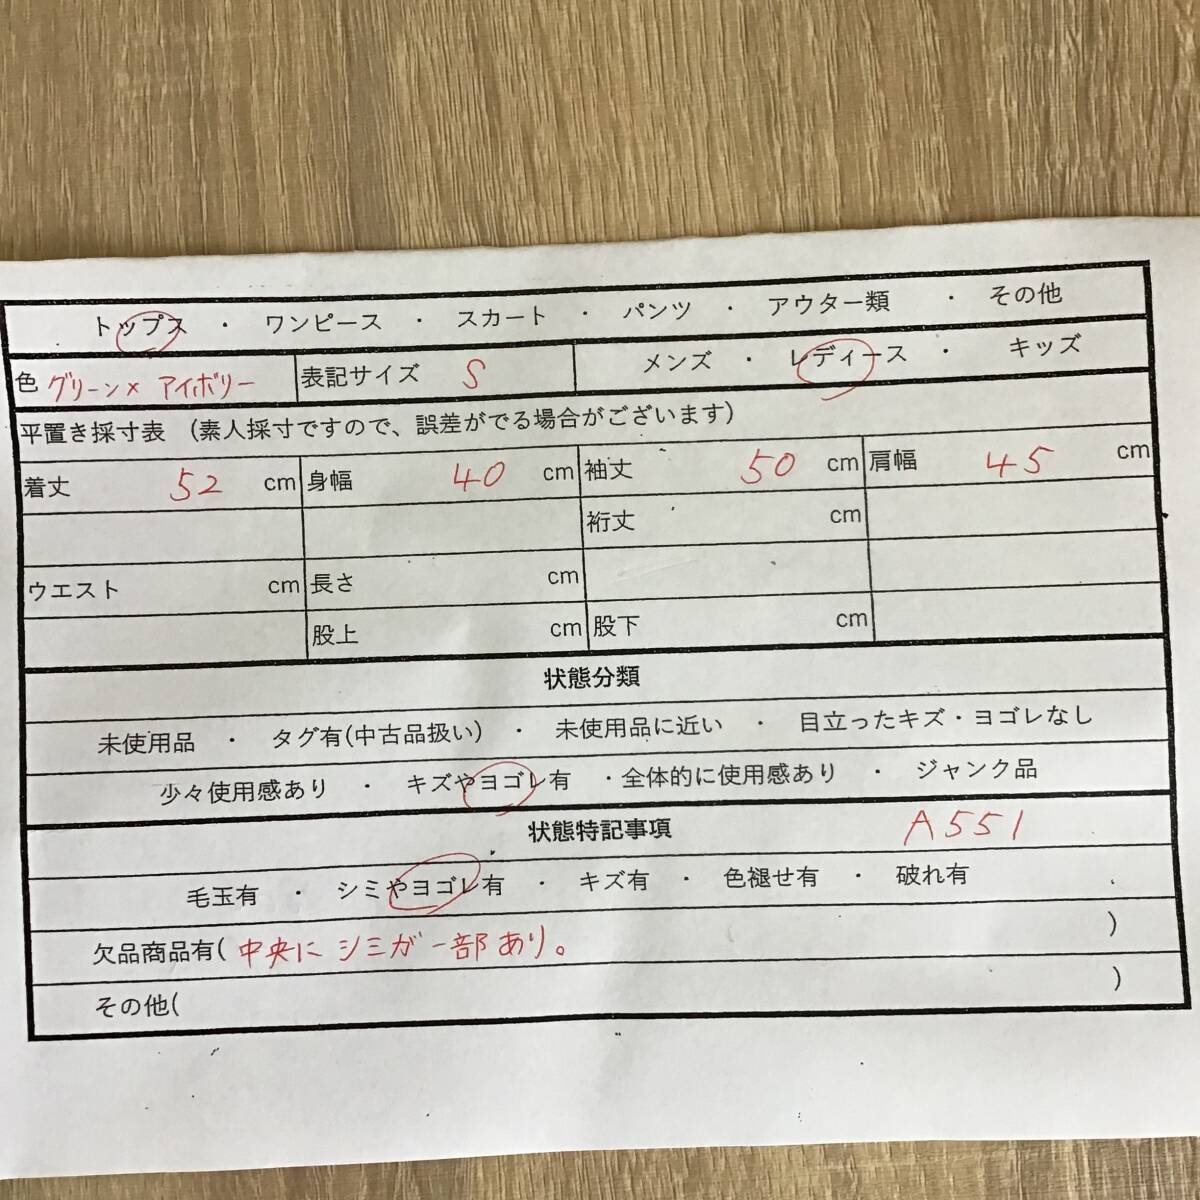 トップス ・ ワンピース ・ スカート ・ パンツ ・ アウター類 ・ その他
色 グリーン× アイボリー 表記サイズ S メンズ ・ レディース ・ キッズ
平置き採寸表 (素人採寸ですので、誤差がでる場合がございます)
着丈 52 cm 身幅 40 cm 袖丈 50 cm 肩幅 45 cm
裄丈 cm
ウエスト cm 長さ cm
股上 cm 股下 cm
状態分類
未使用品 ・ タグ有(中古品扱い) ・ 未使用品に近い ・ 目立ったキズ・ヨゴレなし
少々使用感あり ・ キズやヨゴレ有 ・全体的に使用感あり ・ ジャンク品
状態特記事項 A551
毛玉有 ・ シミやヨゴレ有 ・ キズ有 ・ 色褪せ有 ・ 破れ有
欠品商品有( 中央に シミが 一部 あり。 )
その他( )